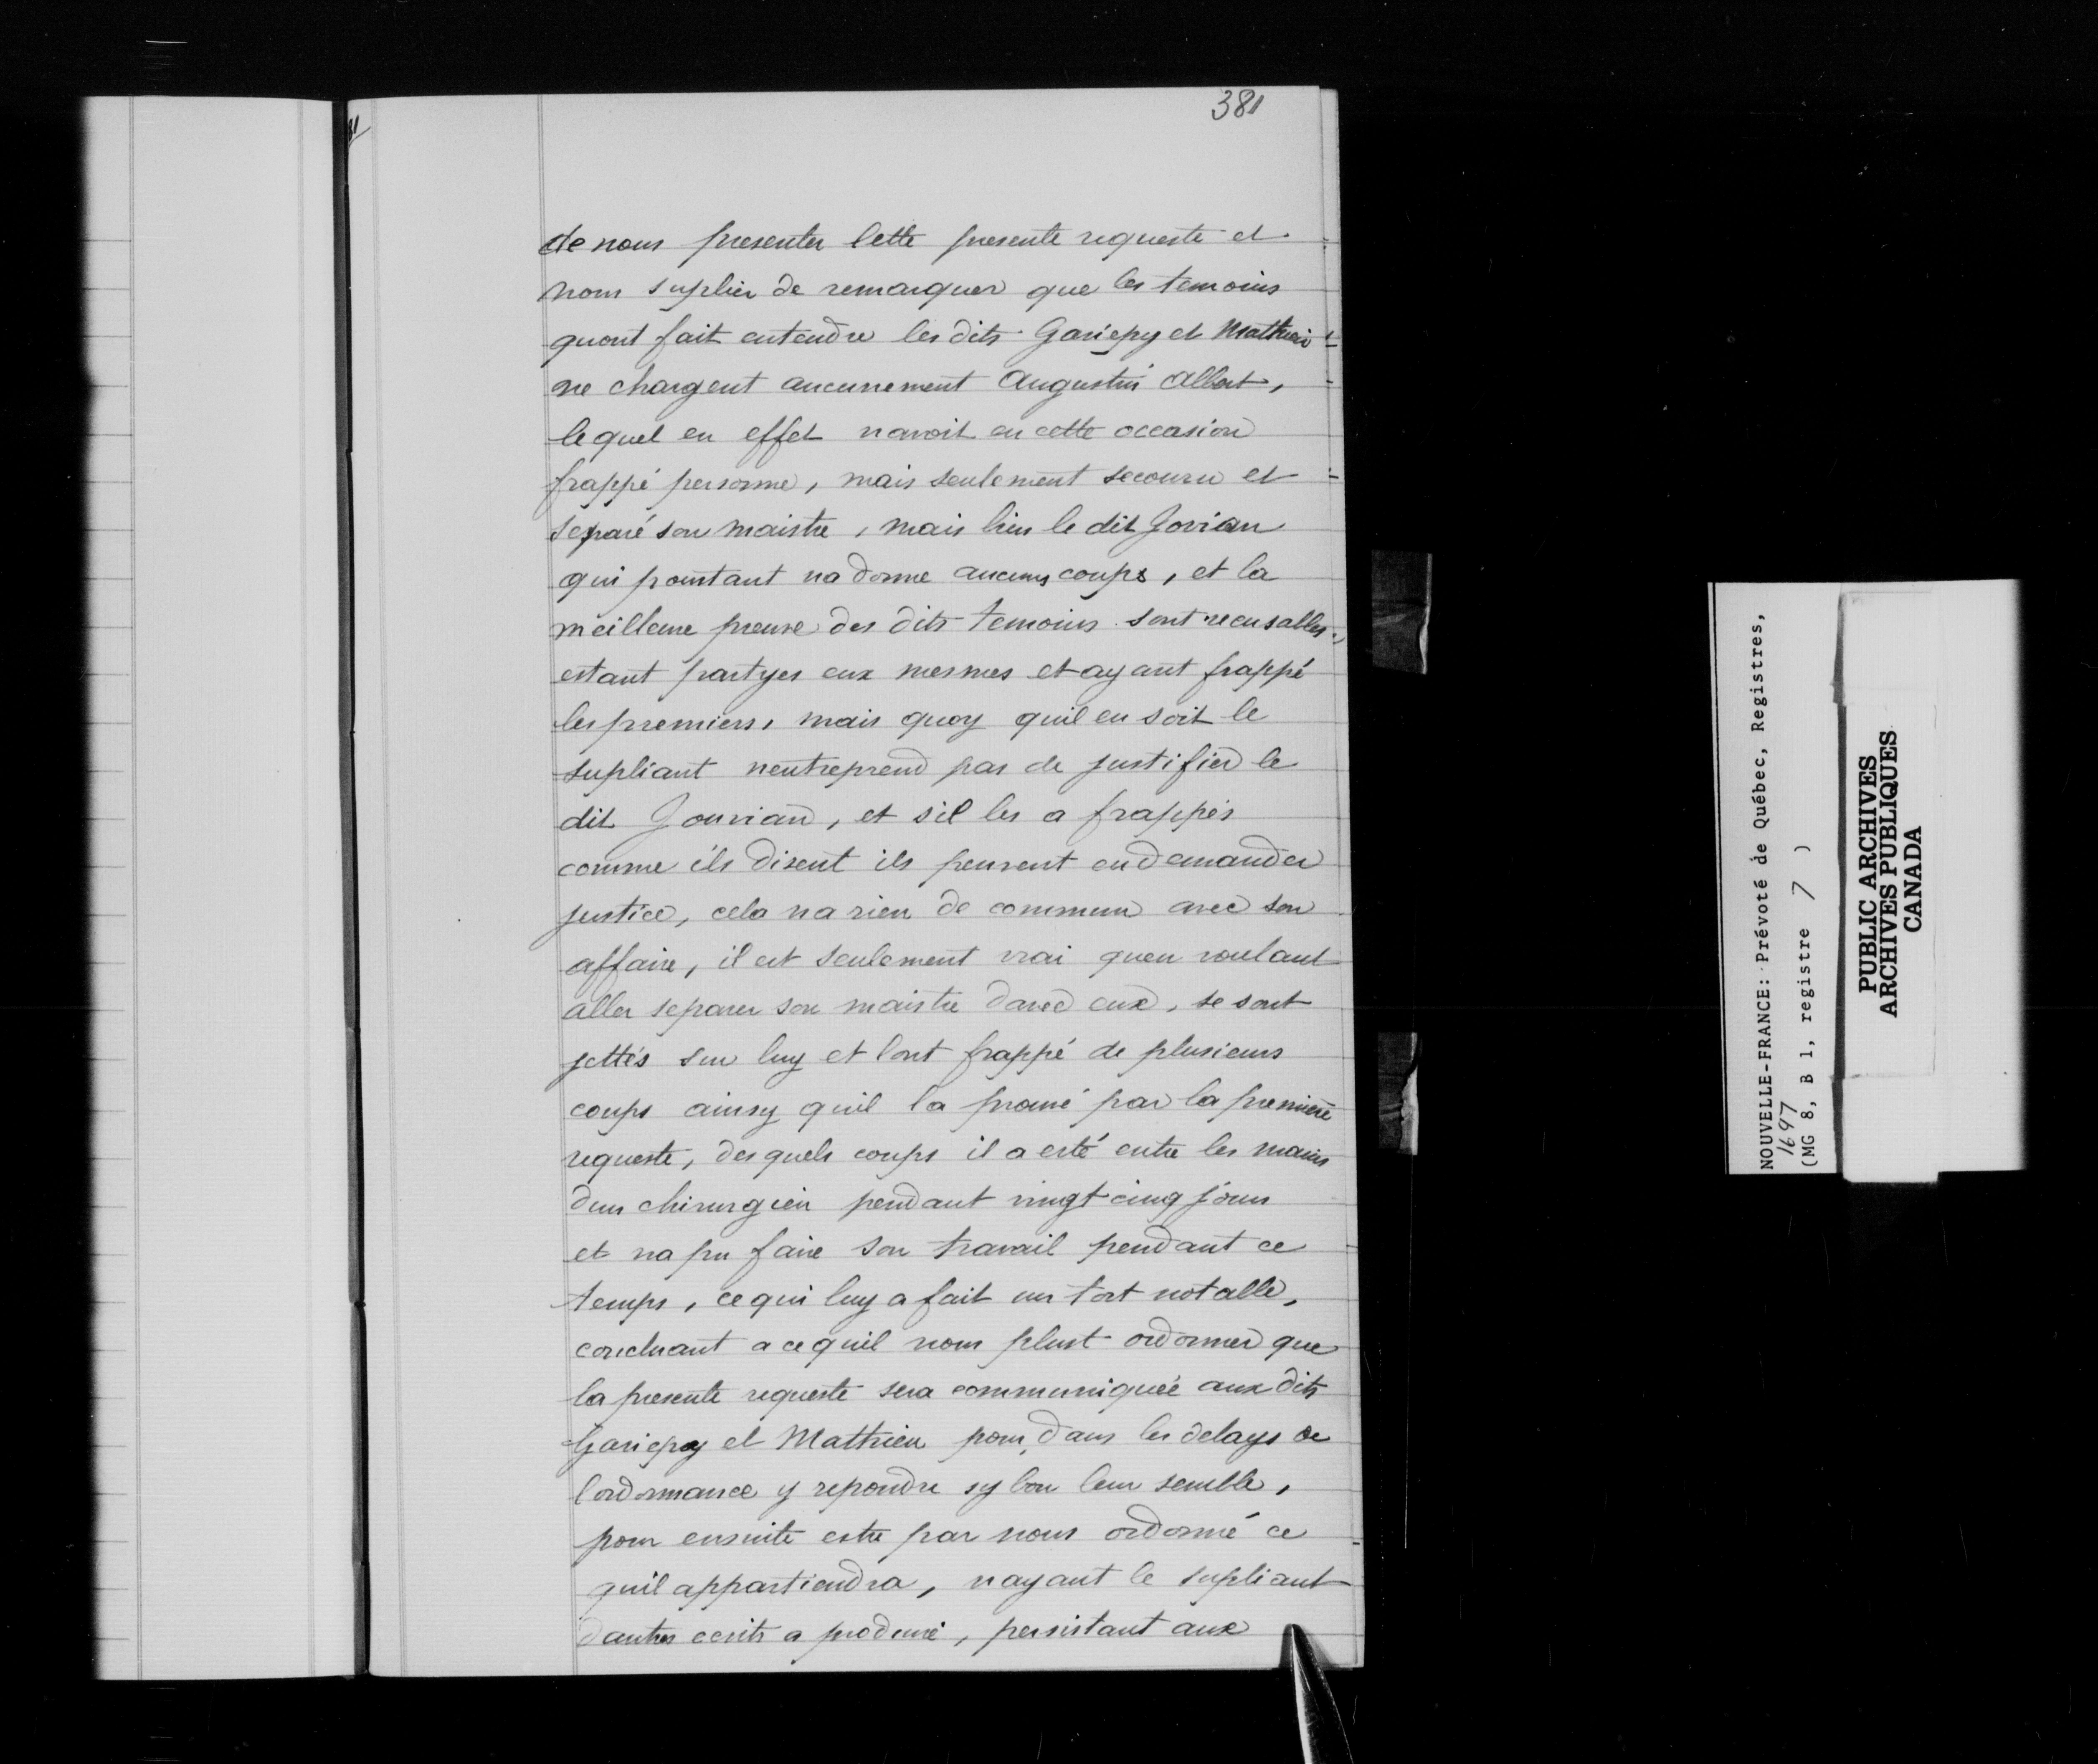 381
de nous presenter cette presente requeste et
nous suplier de remarquer que les temoins
quont fait entendre les dits Gariepy et Mathieu
ne chargent aucunement Augustin Albert,
lequel en effet navoit en cette occasion
frappé personne, mais seulement secouru et
separé son maistre, mais bien le dit Jovian
qui pourtant na donne aucuns coups, et la
meilleure preuve des dits temoins sont recusables,
estant partyes eux mesmes et ayant frappé
les premiers, mais quoy quil en soit le
supliant nentreprend pas de justifier le
dit Jouvian, et s'il les a frappés
comme ils disent ils peuvent en demander
justice, cela na rien de commun avec son
affaire, il est seulement vrai quen voulant
aller separer son maistre davec eux, se sont
jettés sur luy et lont frappé de plusieurs
coups ainsy quil la prouvé par la premiere
requeste, desquels coups il a esté entre les mains
dun chirurgien pendant vingt cinq jours
et na pu faire son travail pendant ce
temps, ce qui luy a fait un tort notable,
concluant a ce quil nous plust ordonner que
la presente requeste sera communiquée aux dits
Gariepy et Mathieu pour, dans les delays de
lordonnance y repondre sy bon leur semble,
pour ensuite estre par nous ordonné ce
quil appartiendra, nayant le supliant
dautres ecrits a produire, persistant aux
NOUVELLE-FRANCE: Prévoté de Québec, Registres,
1697
(MG 8, B 1, registre 7 )
PUBLIC ARCHIVES
ARCHIVES PUBLIQUES
CANADA